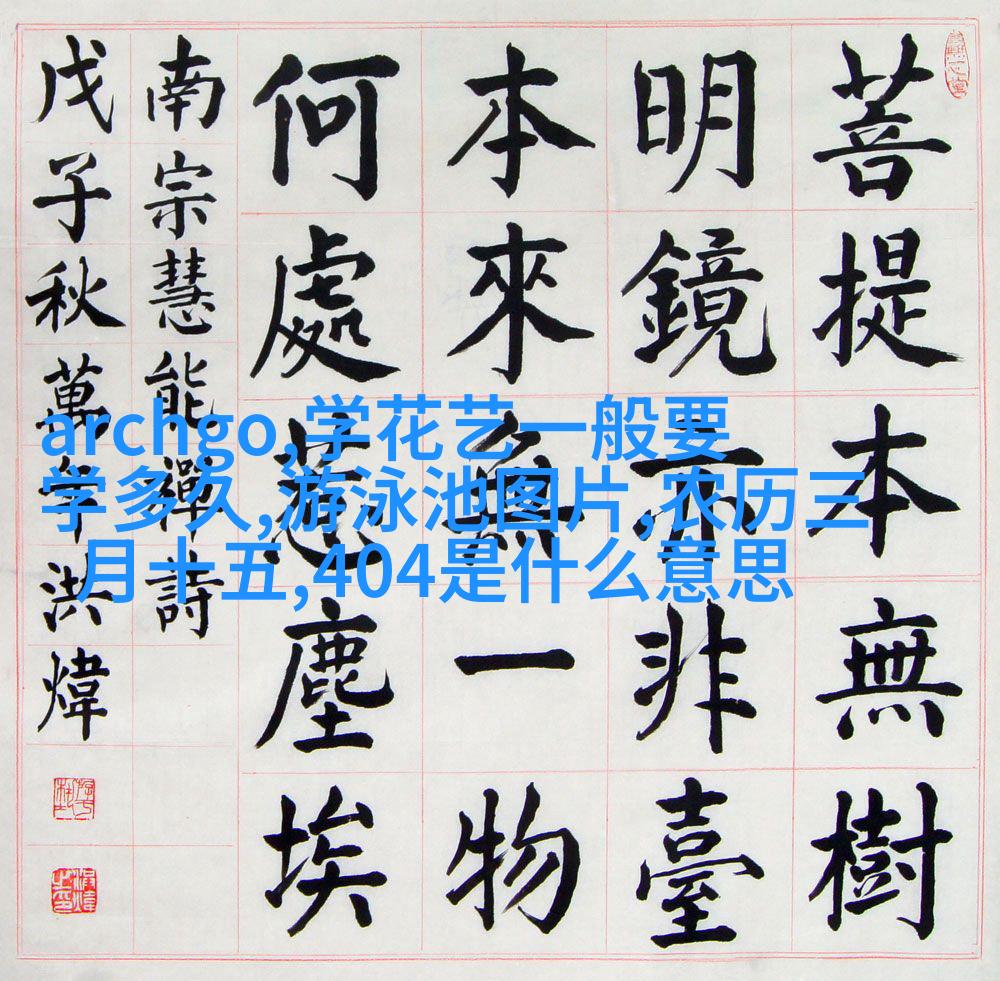 菩提本無樹
明鏡亦非臺
本來無一物
何處惹塵埃
南宗慧能禪詩
戊子秋萬年洪煒
archgo,学花艺一般要
学多久,游泳池图片,农历三
月十五,404是什么意思